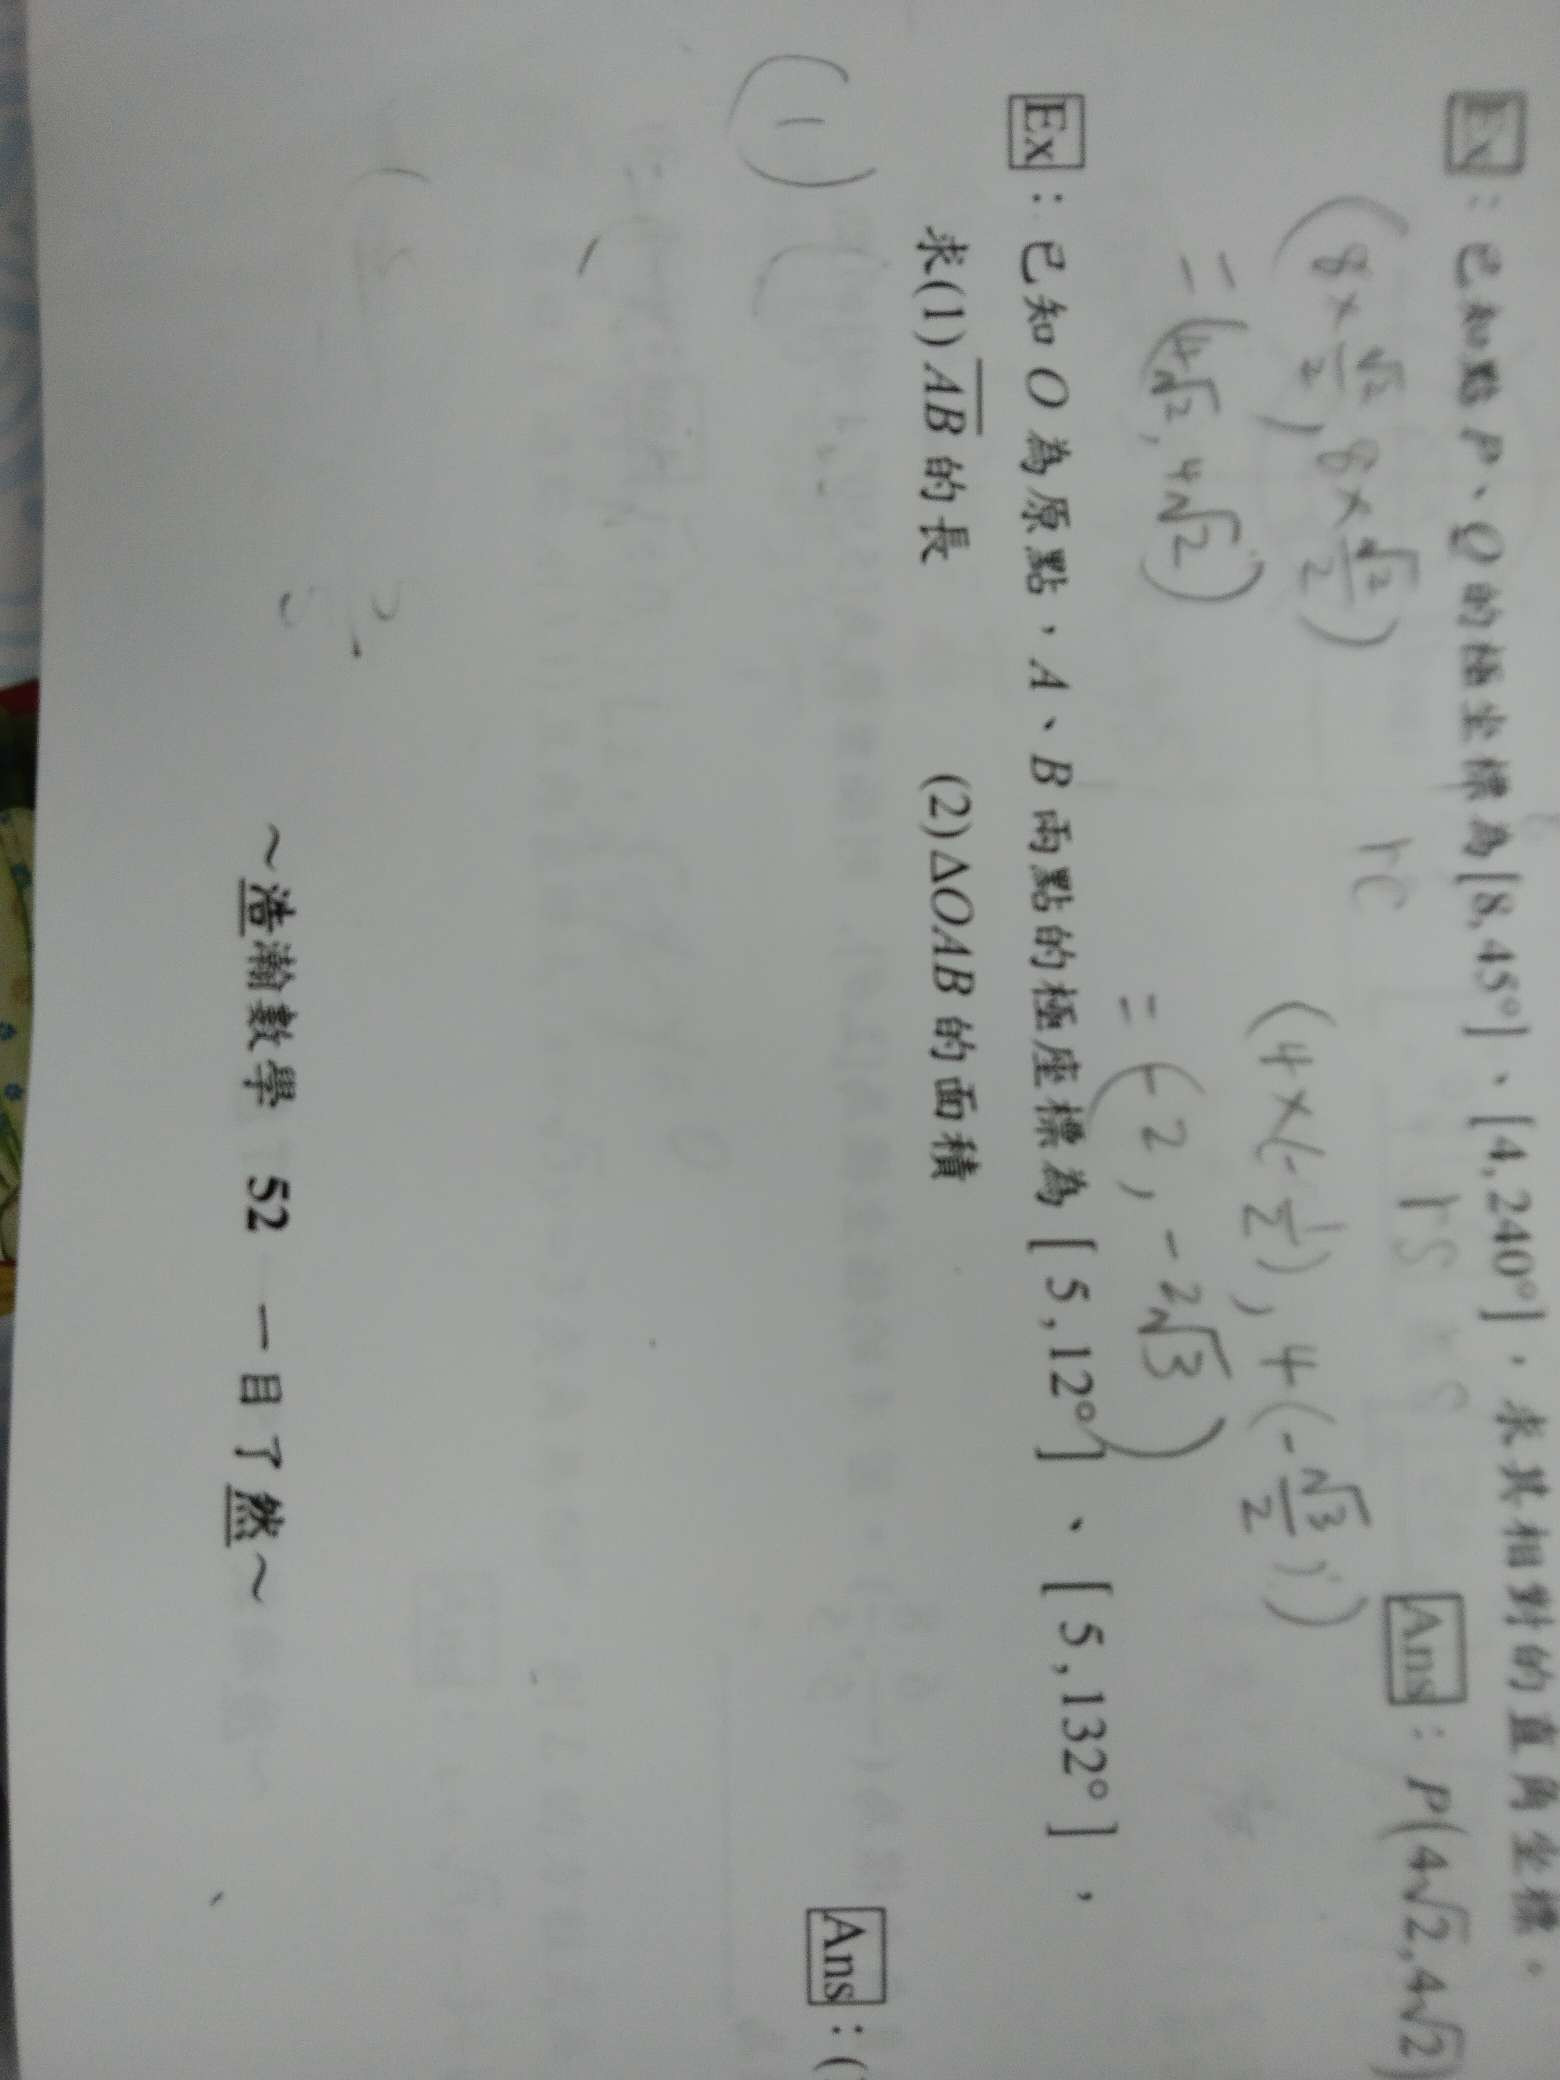 Ex：已知點 P、Q 的極坐標為[8, 45°]、[4, 240°]，求其相對的直角坐標。
Ans：P(4√2, 4√2)
rC rS
(8×√2/2, 8×√2/2) (4×(-1/2), 4(-√3/2))
=(4√2, 4√2) =(-2, -2√3)
Ex：已知 O 為原點，A、B 兩點的極座標為 [ 5 , 12° ]、[ 5 , 132° ]，
求(1) AB 的長 (2) ΔOAB 的面積
Ans：(
(1)
～浩瀚數學 52 一目了然～